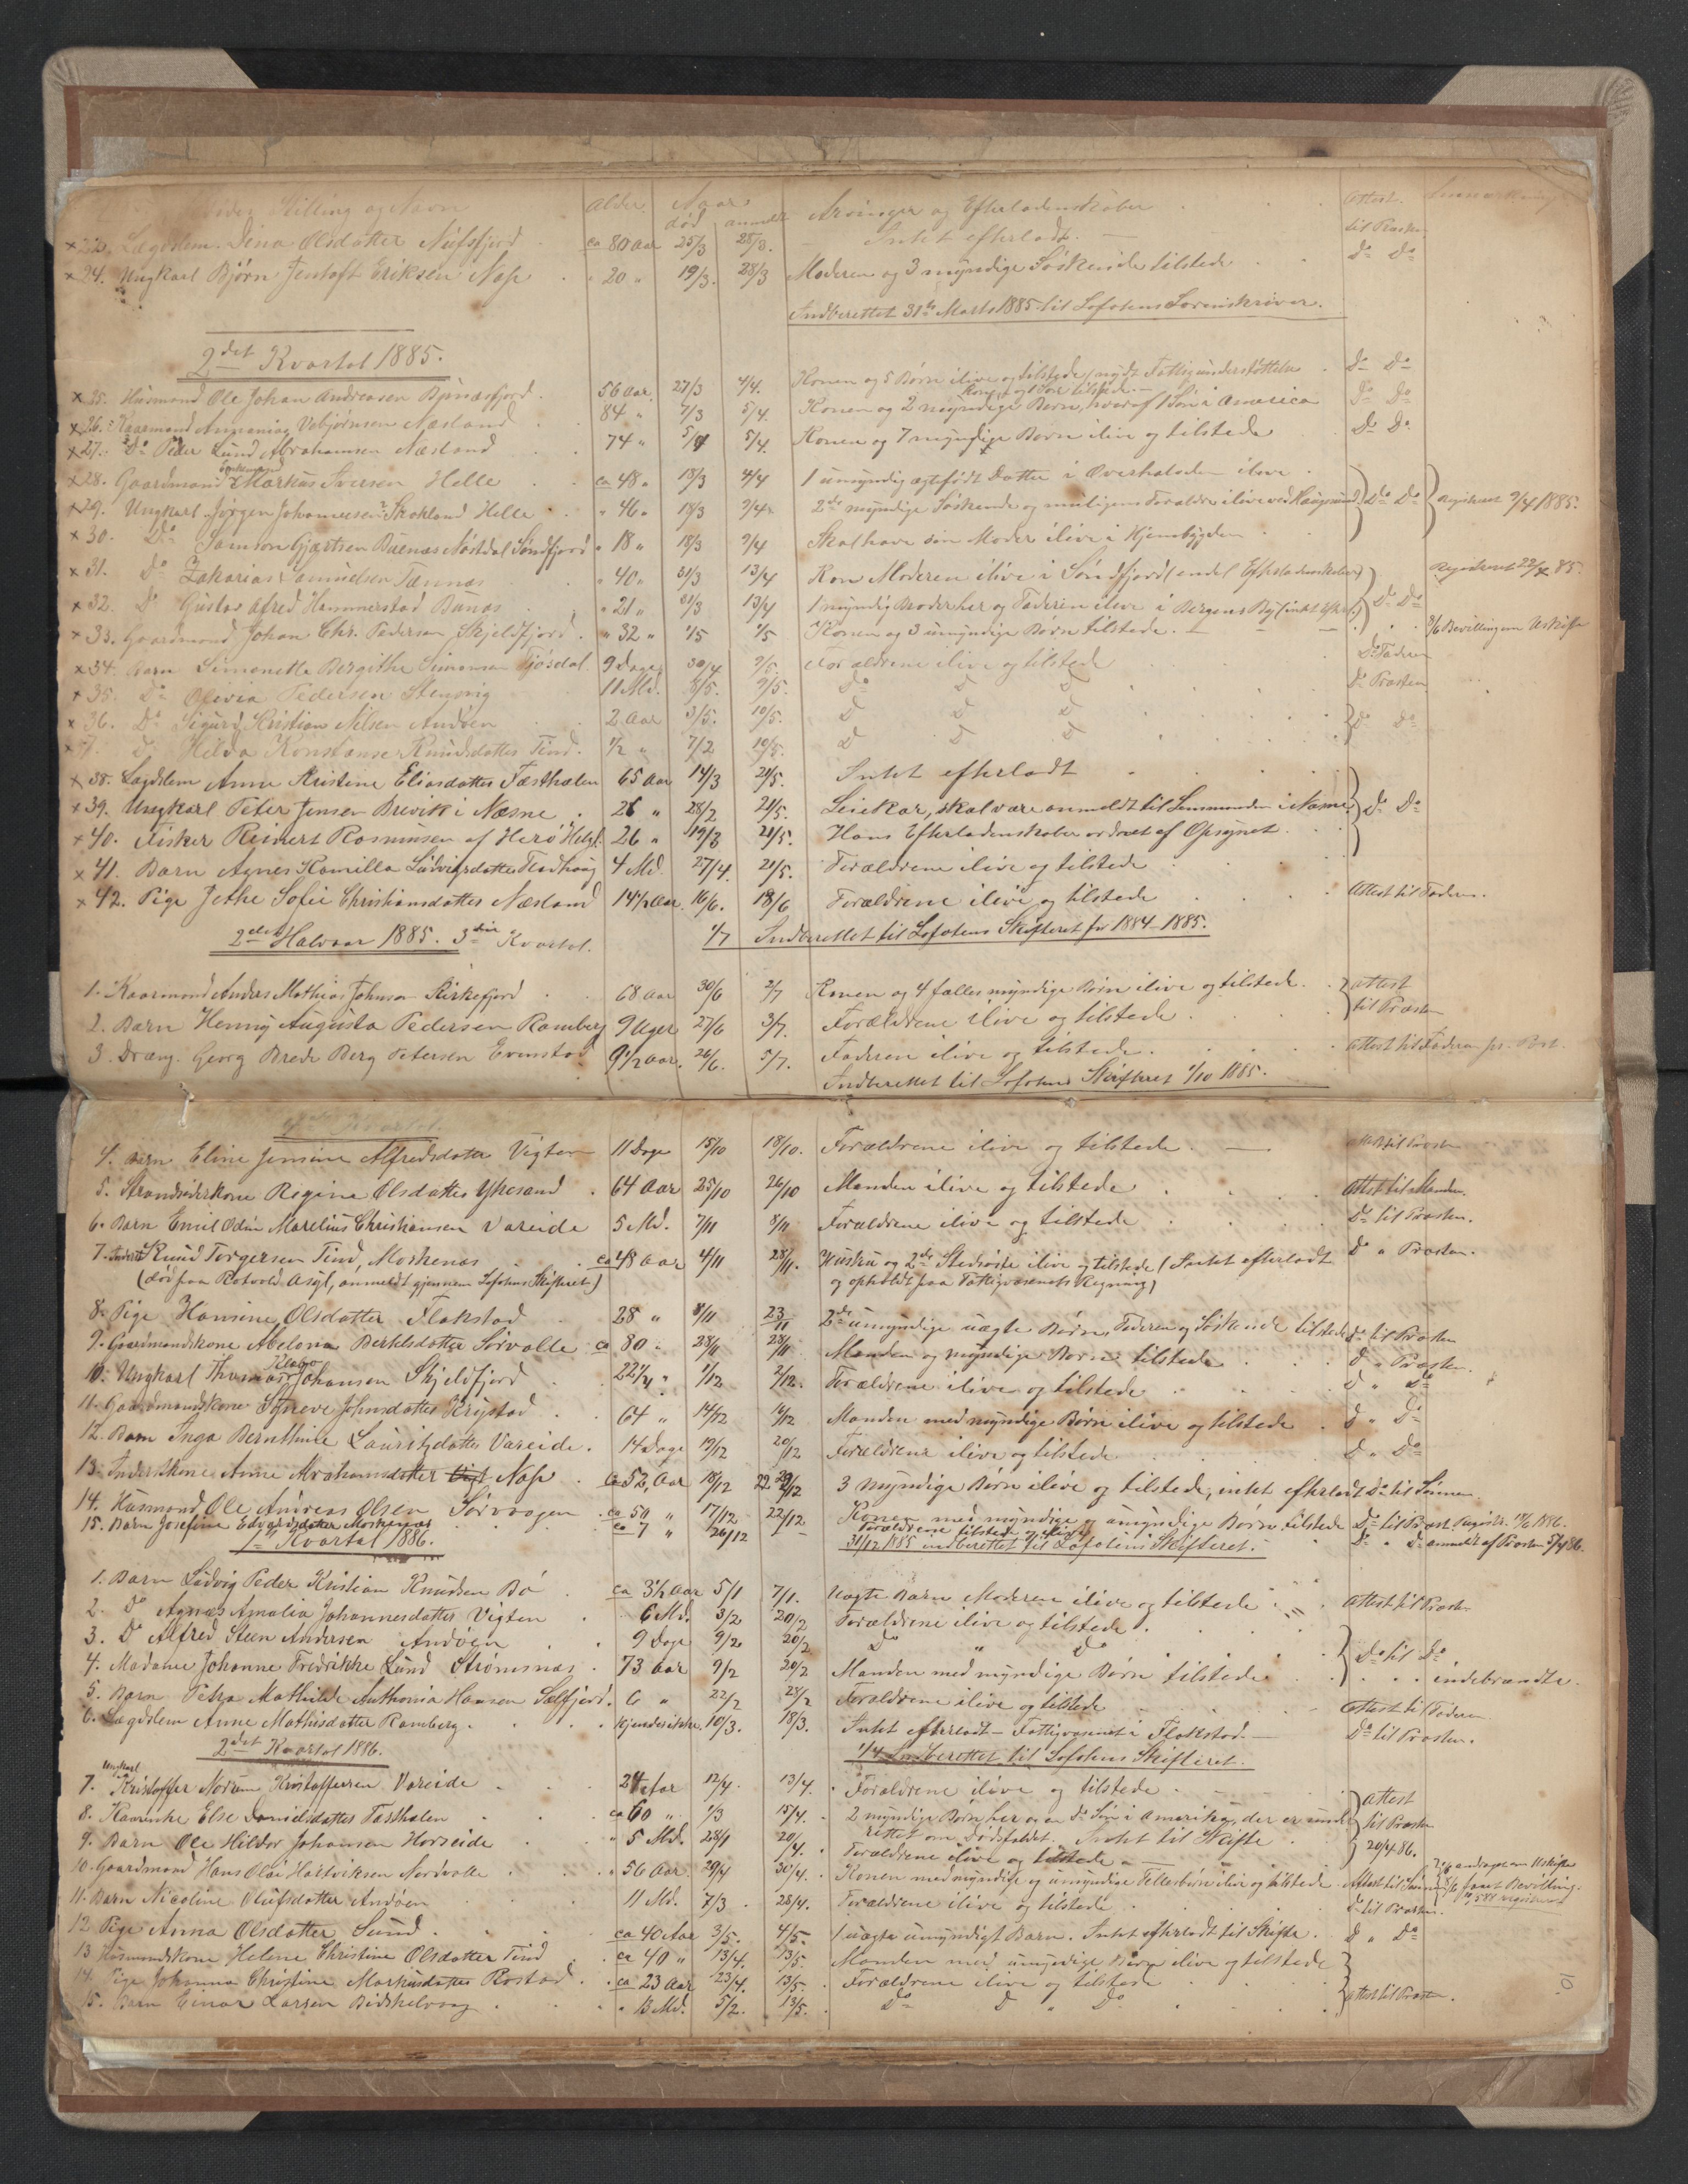 Stilling og Navn Alder Aar død anmeldt Arvinger og Efterladenskaber Attest til Præsten Anmerkning
x 23. Lægdslem. Dina Olsdatter Nufsfjord ca 80 Aar 25/3 28/3. Intet efterladt. — Do Do
x 24. Ungkarl Bjørn Jentoft Eriksen Nap 20 " 19/3. 28/3 Moderen og 3 myndige Søskende tilstede
Indberettet 31te Marts 1885 til Lofotens Sorenskriver.
2det Kvartal 1885.
x 25. Husmand Ole Johan Andreasen Bjørnæsfjord. 56 Aar. 27/3 4/4. Konen og 5 Børn ilive og tilstede / nydt Fattigunderstøttelse Do Do
Kone og 1 Søn tilstede. —
x 26. Kaarmand Annanias Vebjørnsen Næsland 84 " 7/3 5/4. Konen og 2 myndige Børn, hvoraf 1 Søn i America Do Do
x 27. Do Peder Lund Abrahamsen Næsland 74 " 5/4 5/4. Konen og 7 myndige Børn ilive og tilstede Do Do
Enkemand
x 28. Gaardmand Markus Iversen Helle ca 48 " 18/3 4/4 1 umyndig ægtefødt Datter i Overhalsden ilive
x 29. Ungkarl Jørgen Johannesen Skokland Helle " 46 " 18/3 9/4. 2de myndige Søskende og muligens Forældre ilive ved Haugesund Do Do Registreret 9/4 1885.
x 30. Do Samson Gjærtsen Buenæs Nøstdal Søndfjord " 18 " 18/3 9/4 Skal have sin Moder ilive i Hjembygden
x 31. Do Zakarias Samuelsen Tænnæs " 40 " 31/3 13/4 Kun Moderen ilive i Søndfjord (endel Efterladenskaber) Registreret 22/4 85.
x 32. Do Gustav Alfred Hammerstad Bunæs " 21 " 31/3 13/4 1 myndig Broder her og Faderen ilive i Bergens By (intet efterl.) Do Do
x 33. Gaardmand Johan Chr. Pedersen Skjeldfjord. " 32 " 1/5 1/5 Konen og 3 umyndige Børn tilstede. — — — 2/6 Bevilling om Uskifte
x 34. Barn Simonette Bergithe Simonsen Fjøsdal. 9 Dage 30/4 9/5. Forældrene ilive og tilstede Do Faderen
x 35. Do Olivia Pedersen Stensvig 11 Md. 8/5. 9/5. Do D D Do Præsten
x 36. Do Sigurd Kristian Nilsen Andøen 2 Aar 3/5. 10/5. D D D Do Do
x 37. Do Hilda Konstanse Knudsdatter Tind. 1/2 " 7/2 10/5. D D D
x 38. Lægdslem Anne Kristine Eliasdatter Fæsthælen 65 Aar 14/3 21/5. Intet efterladt
x 39. Ungkarl Peter Jensen Brevik i Næsne. 26 " 28/2 21/5. Leiekar, skal være anmeldt til Lensmanden i Næsne Do Do
x 40. Fisker Reinert Rasmusen af Herø Helgl. 26 " 19/3 21/5. Hans Efterladenskaber ordnet af Opsynet.
x 41. Barn Agnes Kamilla Ludvigsdatter Fladhaug 4 Md. 27/4. 21/5. Forældrene ilive og tilstede
x 42. Pige Jethe Sofie Christiansdatter Næsland 14 1/2 Aar. 16/6. 18/6 Forældrene ilive og tilstede Attest til Faderen.
2det Halvaar 1885. 3die Kvartal. 1/7 Indberettet til Lofotens Skifteret for 1884–1885.
1. Kaarmand Andreas Mathias Johnsen Kirkefjord 68 Aar 30/6 2/7 Konen og 4 fælles myndige Børn ilive og tilstede. attest
2. Barn Henny Augusta Pedersen Ramberg 9 Uger 27/6 3/7. Forældrene ilive og tilstede til Præsten
3. Dræng. Georg Brede Berg Petersen Evenstad 9 1/2 Aar. 26/6. 5/7. Faderen ilive og tilstede. attest til Faderen pr. Post.
Indberettet til Lofotens Skifteret 1/10 1885.
4de Kvartal.
4. Barn Eline Jensine Alfredsdatter Vigten 11 Dage 15/10 18/10. Forældrene ilive og tilstede. — attest til Præsten
5. Strandsiderkone Regine Olsdatter Ytresand 64 Aar 25/10 26/10 Manden ilive og tilstede Attest til Manden.
6. Barn Emil Odin Marelius Christiansen Vareide 5 Md. 7/11 8/11 Forældrene ilive og tilstede Do til Præsten.
7. Inderst Knud Torgersen Tind, Moskenes ca 48 Aar 4/11 28/11. Hustru og 2de Stedsøstre ilive og tilstede (Intet efterladt Do " Præsten.
(død paa Rotvold Asyl, anmeldt gjennem Lofotens Skifteret) og opholdt paa Fattigvæsenets Regning)
8. Pige Hansine Olsdatter Flakstad 28 " 8/11 23/11 2de umyndige uægte Børn, Faderen og Søskende tilstede Do til Præsten
9. Gaardmandskone Abelona Berthelsdatter Sørvolle ca 80 " 28/11 28/11 Manden og myndige Børn tilstede D " Præsten.
10. Ungkarl Thomas Johansen Skjeldfjord 22 1/4 " 1/12 2/12. Forældrene ilive og tilstede D " Do
11. Gaardmandskone Synneve Johnsdatter Krystad 64 " 14/12 16/12 Manden med myndige Børn ilive og tilstede D " Do
12. Barn Inga Bernthine Lauritzdatter Vareide. 14 Dage 19/12 20/12 Forældrene ilive og tilstede D " Do
13. Inderstkone Anne Abrahamsdatter Nap ca 52 Aar 18/12 22/12 3 myndige Børn ilive og tilstede, intet efterladt Do til Sønnen
14. Husmand Ole Andreas Olsen Sørvaagen ca 50 " 17/12 22/12. Konen med myndige og umyndige Børn tilstede Do til Præst. Registr. 14/6 1886.
15. Barn Josefine Edvardsdatter Moskenæs ca 7 " 26/12 — Forældrene tilstede og ilive Do " Do anmeldt af Præsten 5/4 86.
1ste Kvartal 1886. 31/12 1885 indberettet til Lofotens Skifteret.
1. Barn Ludvig Peder Kristian Knudsen Bø ca 3 1/2 Aar 5/1 7/1. Uægte Barn Moderen ilive og tilstede Attest til Præsten
2. Do Agnæs Amalia Johannesdatter Vigten 6 Md. 3/2 20/2 Forældrene ilive og tilstede.
3. Do Alfred Steen Andersen Andøen 9 Dage 9/2 20/2 Do " Do
4. Madame Johanne Fredrikke Lund Strømsnæs 73 Aar 9/2 20/2 Manden med myndige Børn tilstede. Do til Do
5. Barn Petra Mathilde Anthonia Hansen Selfjord. 6 " 22/2 28/2 Forældrene ilive og tilstede indebrændte.
6. Lægdslem Anne Mathisdatter Ramberg. kjendes ikke. 10/3. 18/3. Intet efterladt — Fattigvæsenet i Flakstad. — Attest til Faderen
Do til Præsten.
2det Kvartal 1886. 1/4 Indberettet til Lofotens Skifteret.
Ungkarl
7. Kristoffer Norum Kristoffersen Vareide 24 Aar 12/4. 13/4. Forældrene ilive og tilstede attest
8. Kaarenke Else Danielsdatter Fæsthælen ca 60 " 1/3 15/4. 2 myndige Børn her og en Do Søn i Amerika, der er under til Præsten
rettet om Dødsfaldet. Intet til Skifte
9. Barn Ole Hildor Johansen Horseide " 5 Md. 28/1 20/4. Forældrene ilive og tilstede — 20/4 86.
10. Gaardmand Hans Olai Hartviksen Nordvolle " 56 Aar. 29/4 30/4. Konen med myndige og umyndige Fellesbørn ilive og tilstede Attest til Sønnen 2/6 andraget om Uskifte
8/6 faaet Bevilling.
11. Barn Nicoline Olufsdatter Andøen 11 Md. 7/3 28/4. Forældrene ilive og tilstede Do til Præsten.
12. Pige Anna Olsdatter Sund ca 40 Aar 3/5. 4/5. 1 uægte umyndigt Barn. Intet efterladt til Skifte. D " Do
13. Husmandskone Helene Christine Olsdatter Tind ca 40 " 13/4. 13/5. Manden med umyndige Børn ilive og tilstede
14. Pige Johanna Christine Markusdatter Rostad ca 23 Aar 23/4. 13/5. Forældrene ilive og tilstede
15. Barn Einar Larsen Bidskelvaag " 13 Md. 5/2. 13/5. Do D " Do attest til Præsten.
10.